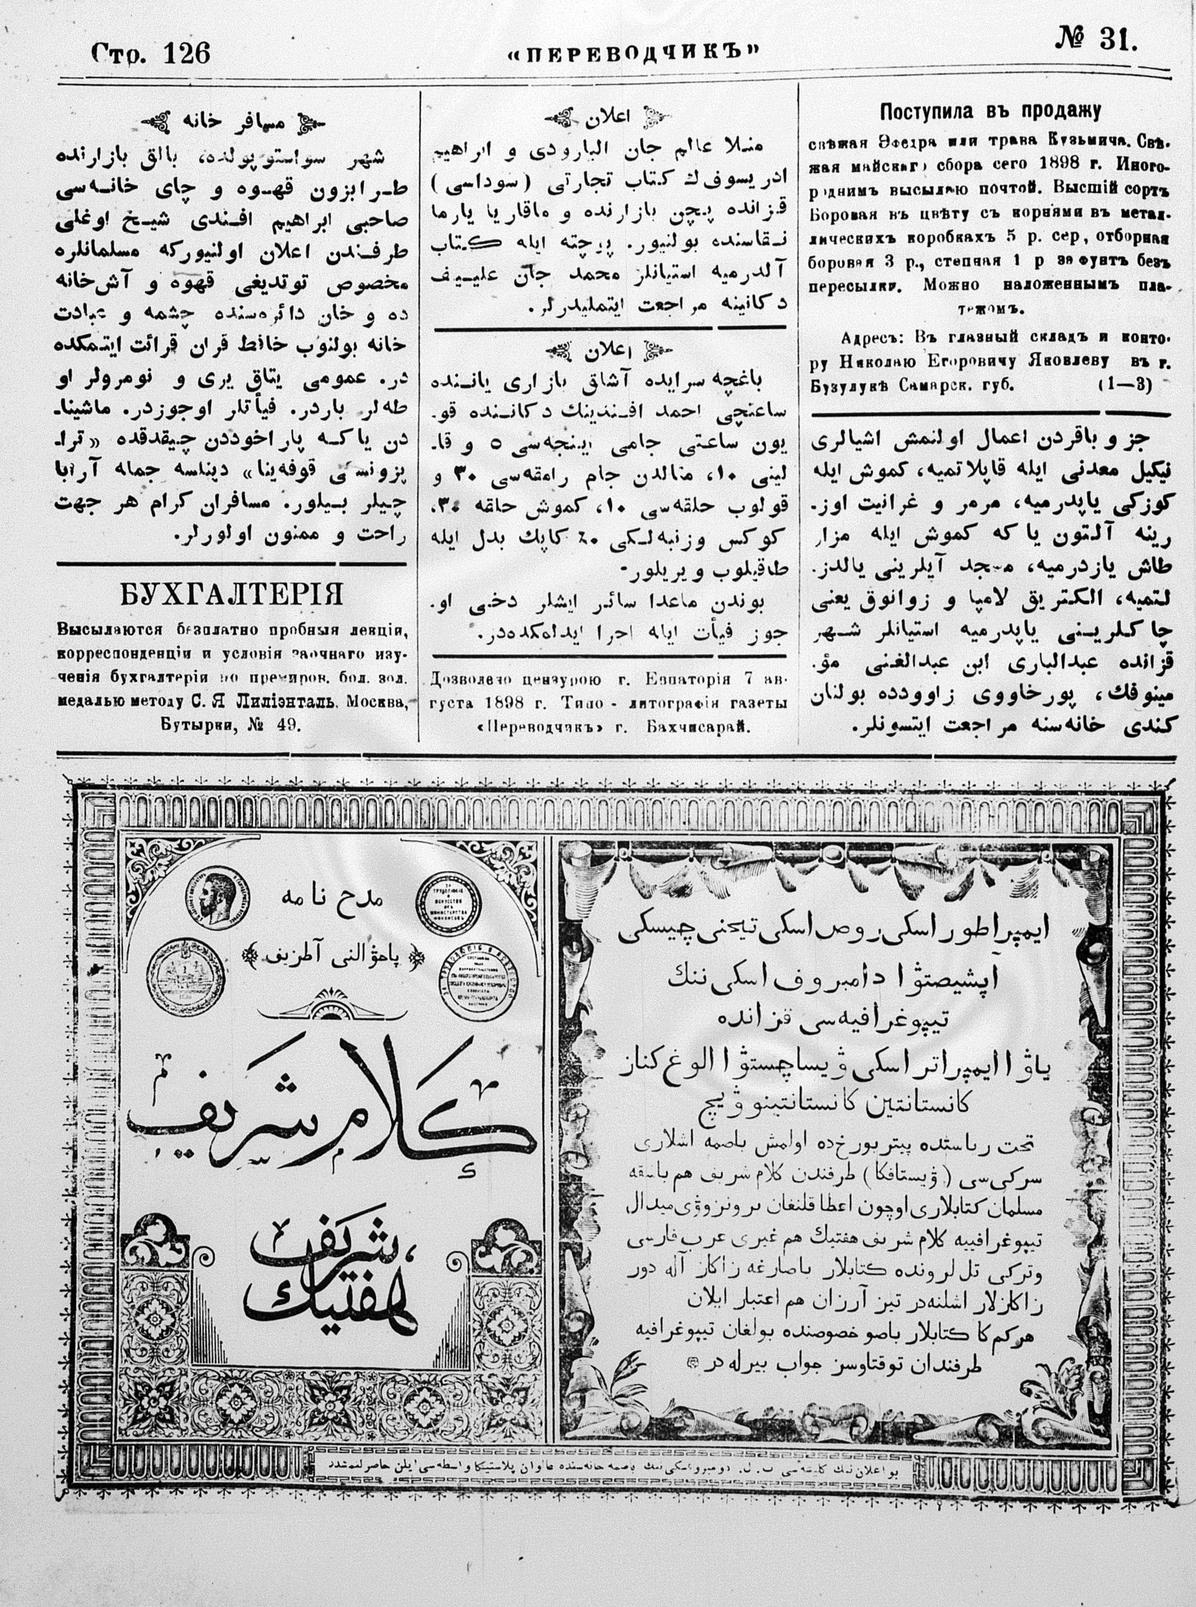 Стр. 126
«ПЕРЕВОДЧИКЪ»
№ 31.
مسافر خانه
شهر سواستوپولده، بالق بازارنده
طرابزون قهوه و چای خانه‌سی
صاحبی ابراهیم افندی شیخ اوغلی
طرفندن اعلان اولنیورکه مسلمانلره
مخصوص توتدیغی قهوه و آش‌خانه
ده و خان دائره‌سنده چشمه و عبادت
خانه بولنوب حافظ قران قرائت ایتمکده
در. عمومی یتاق یری و نومرولر او
طه‌لر باردر. فیأتلر اوجوزدر. ماشینا-
دن یا که پاراخوددن چیقدقده «ترا-
پزونسکی قوفه‌ینا» دینلسه جمله آرابا
چیلر بیلور. مسافران کرام هر جهت
راحت و ممنون اولورلر.
БУХГАЛТЕРІЯ
Высылаются безплатно пробныя лекціи,
корреспонденціи и условія заочнаго изу-
ченія бухгалтеріи по премиров. бол. зол.
медалью методу С. Я Лиліэнталь. Москва,
Бутырки, № 49.
اعلان
منلا عالم جان البارودی و ابراهیم
ادریسوف‌ك كتاب تجارتی (سوداسی)
قزانده پچن بازارنده و ماقاریا یارما
نقاسنده بولنیور. پوچته ایله كتاب
آلدرمیه استیانلر محمد جان علییف
دکانینه مراجعت ایتملیدرلر.
اعلان
باغچه سرایده آشاق بازاری یاننده
ساعتچی احمد افندینك دكاننده قو-
یون ساعتی جامی اینجه‌سی ٥ و قا-
لینی ١٠، منالدن جام رامقه‌سی ٣٠ و
قولوب حلقه‌سی ١٠، كموش حلقه ٣٠،
كاپك بدل ایله
طاقیلوب ویریلور-
بوندن ماعدا سائر ایشلر دخی او-
جوز فیأت ایله اجرا ایدلمکده‌در.
Дозволено цензурою г. Евпаторія 7 ав-
густа 1898 г. Типо - литографія газеты
«Переводчикъ» г. Бахчисарай.
Поступила въ продажу
свѣжая Эфедра или трава Кузьмича. Свѣ-
жая майскаго сбора сего 1898 г. Иного-
роднимъ высылаю почтой. Высшій сортъ
Боровая въ цвѣту съ корнями въ метал-
лическихъ коробкахъ 5 р. сер, отборная
боровая 3 р., степная 1 р за фунтъ безъ
пересылки. Можно наложеннымъ пла-
тежомъ.
Адресъ: Въ главный складъ и конто-
ру Николаю Егоровичу Яковлеву въ г.
Бузулукѣ Самарск. губ. (1—3)
جز و باقردن اعمال اولنمش اشیالری
نیکیل معدنی ایله قاپلاتمیه، كموش ایله
كوزكی یاپدرمیه، مرمر و غرانیت اوز-
رینه آلتون یا که كموش ایله مزار
طاش یازدرمیه، مسجد آیلرینی یالدز-
لتمیه، الكتریق لامپا و زوانوق یعنی
چاكلرینی یاپدرمیه استیانلر شهر
قزانده عبدالباری ابن عبدالغنی مؤ-
مینوفك، پورخاووی زاوودده بولنان
كندی خانه‌سنه مراجعت ایتسونلر.
مدح نامه
پاحۋالنی آطزیف
كلام شریف
هفتیك شریف
ایمپراطوراسكی روص اسكی تیخنی چیسكی
آپشیصتۋا دامبروف اسكی ننك
تیپوغرافیه‌سی قزانده
یاۋا ایمپراتراسكی ۋیساچستۋا الوغ كناز
كانستانتین كانستانتینوۋیچ
تحت ریاستده پیتربورخ‌ده اولمش باصمه اشلاری
سركی‌سی (ۋیستافكا) طرفندن كلام شریف هم باشقه
مسلمان كتابلاری اوچون اعطا قلنغان برونزوۋی میدال
تیپوغرافییه كلام شریف هفتیك هم غیری عرب فارسی
وتركی تل لرونده كتابلار باصارغه زاكاز آله دور
زاكازلار اشلنه‌در تیز آرزان هم اعتبار ایلان
هركم كا كتابلار باصو خصوصنده بولغان تیپوغرافیه
طرفندان توقتاوسز جواب بیرله در